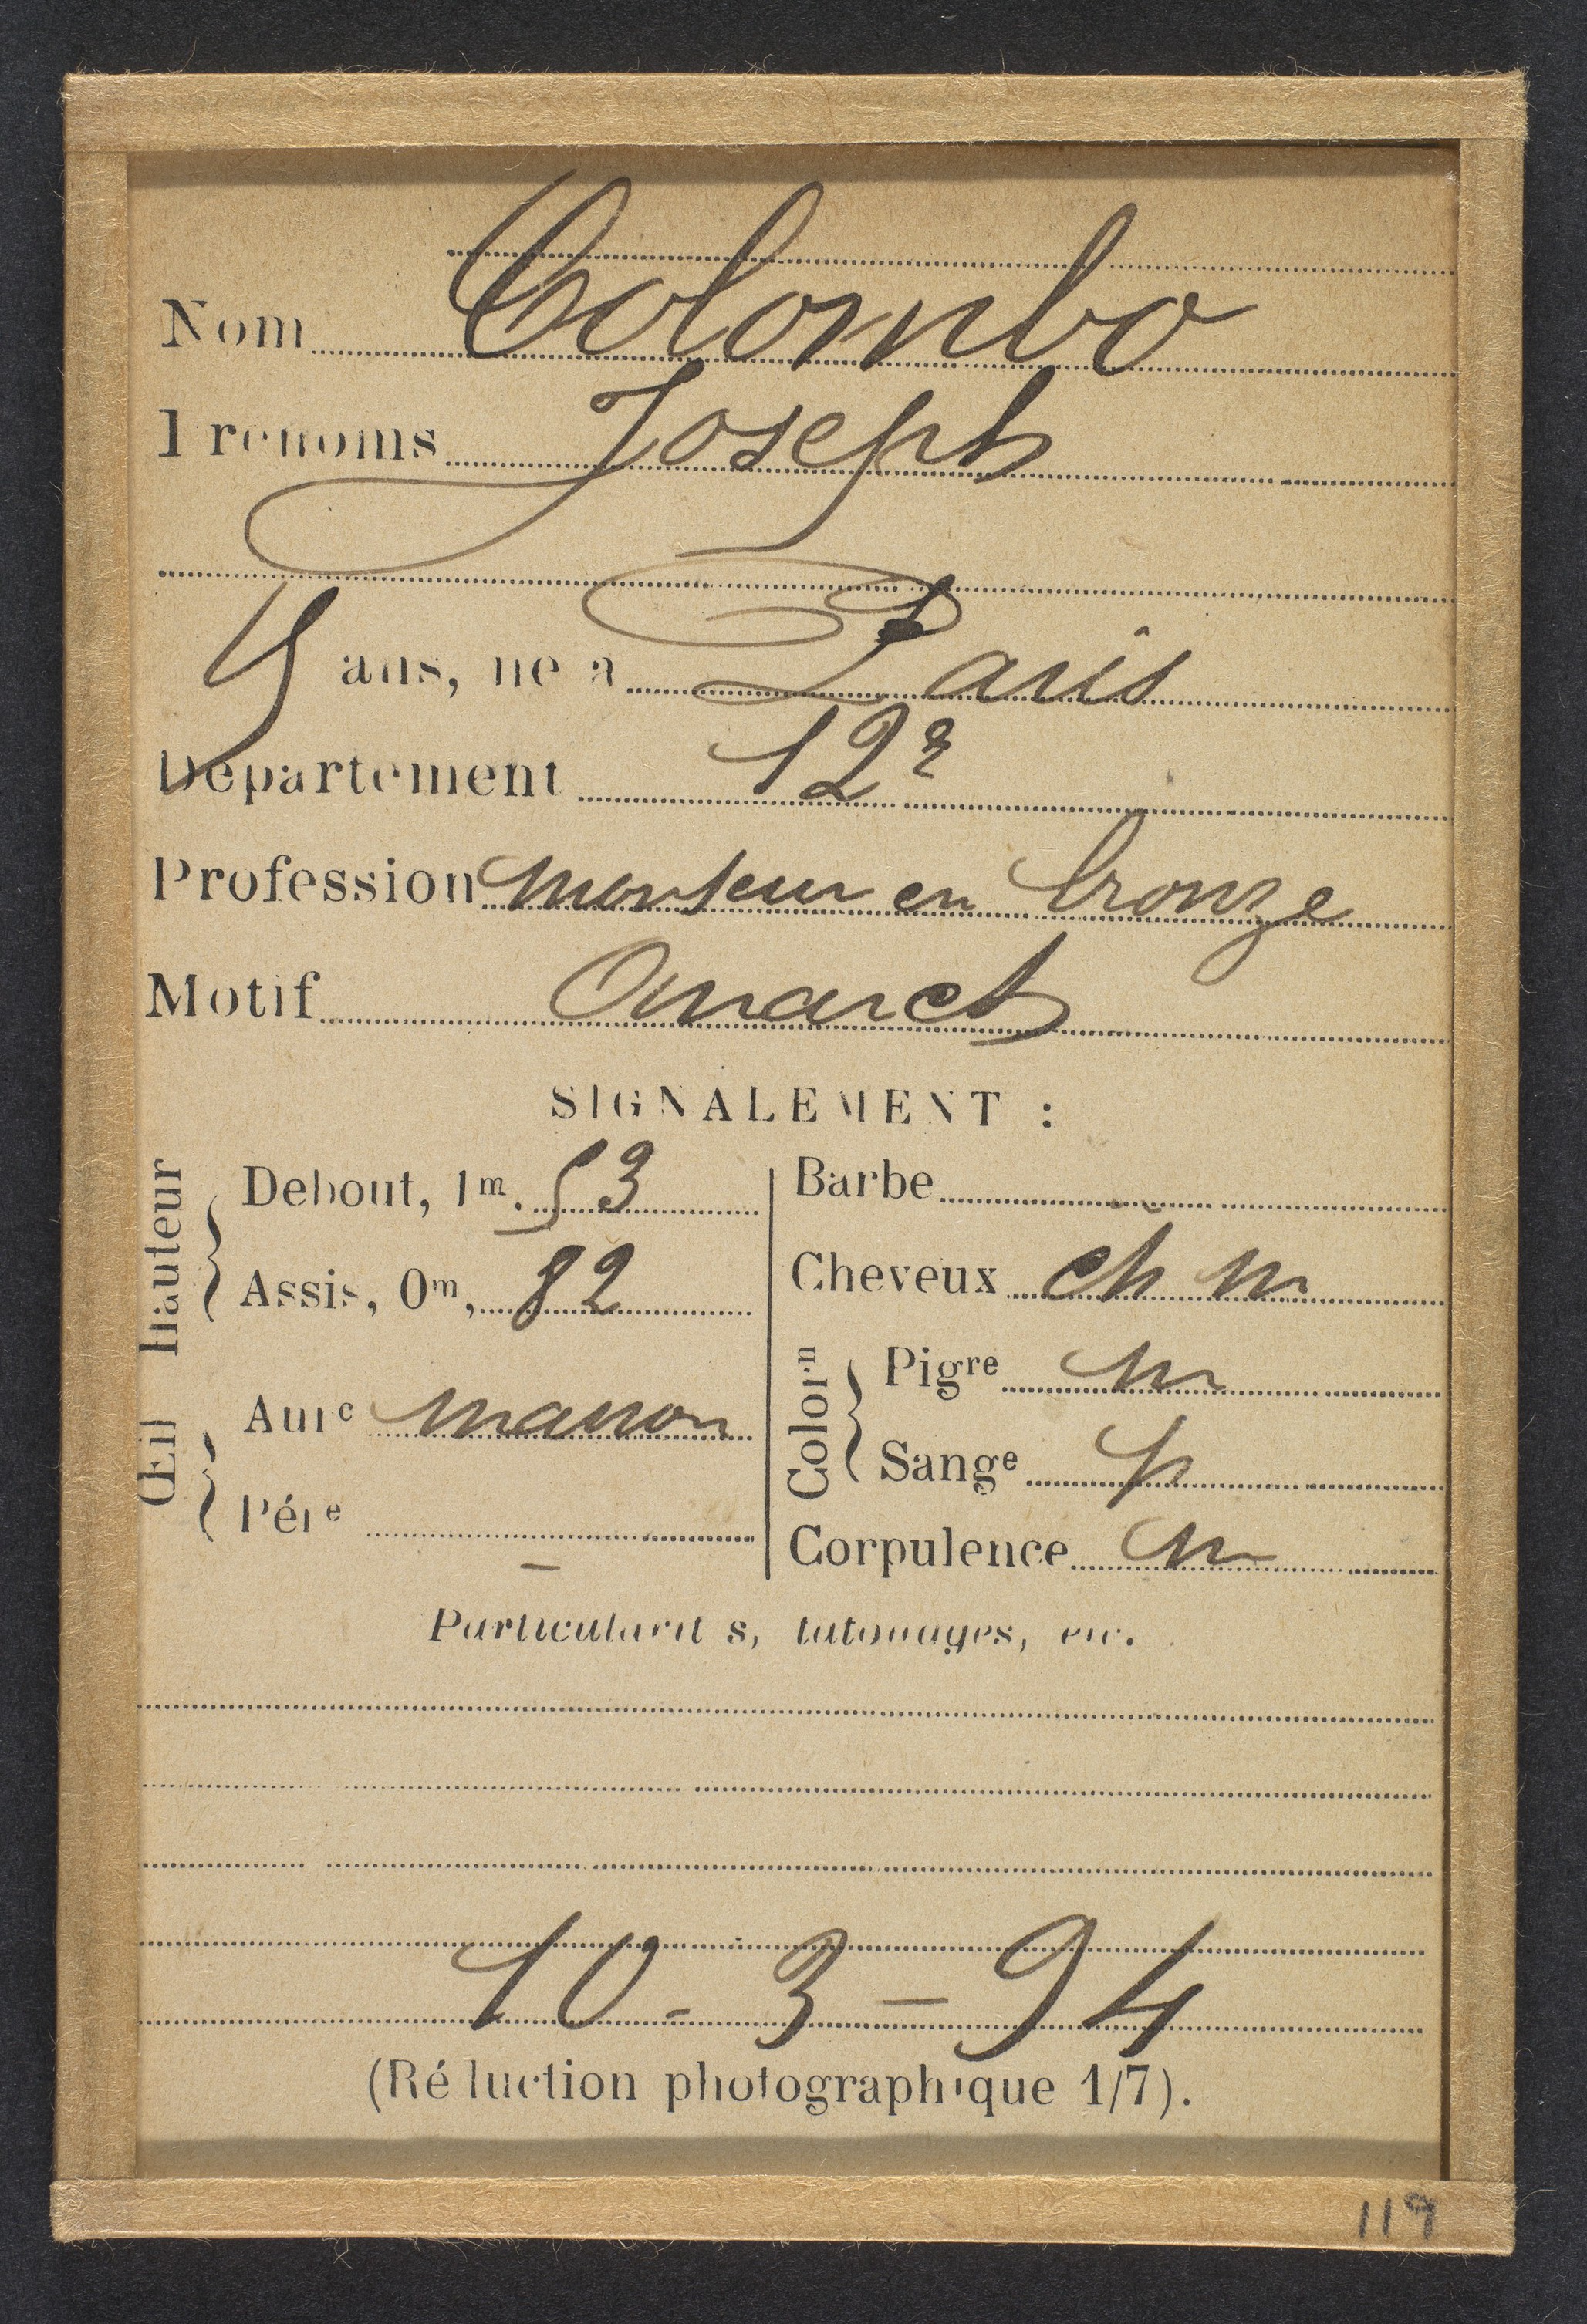 Nom Colombo
Prénoms Joseph
ans, né à Paris
Département 12e
Profession monteur en bronze
Motif Anarch
SIGNALEMENT :
Hauteur
Debout, 1m. 53
Assis, 0m, 82
Œil
Aule marron
Pére –
Barbe
Cheveux ch m
Colorn
Pigre m
Sange p
Corpulence m
Particularités, tatouages, etc.
10 - 3 - 94
(Réduction photographique 1/7).
119